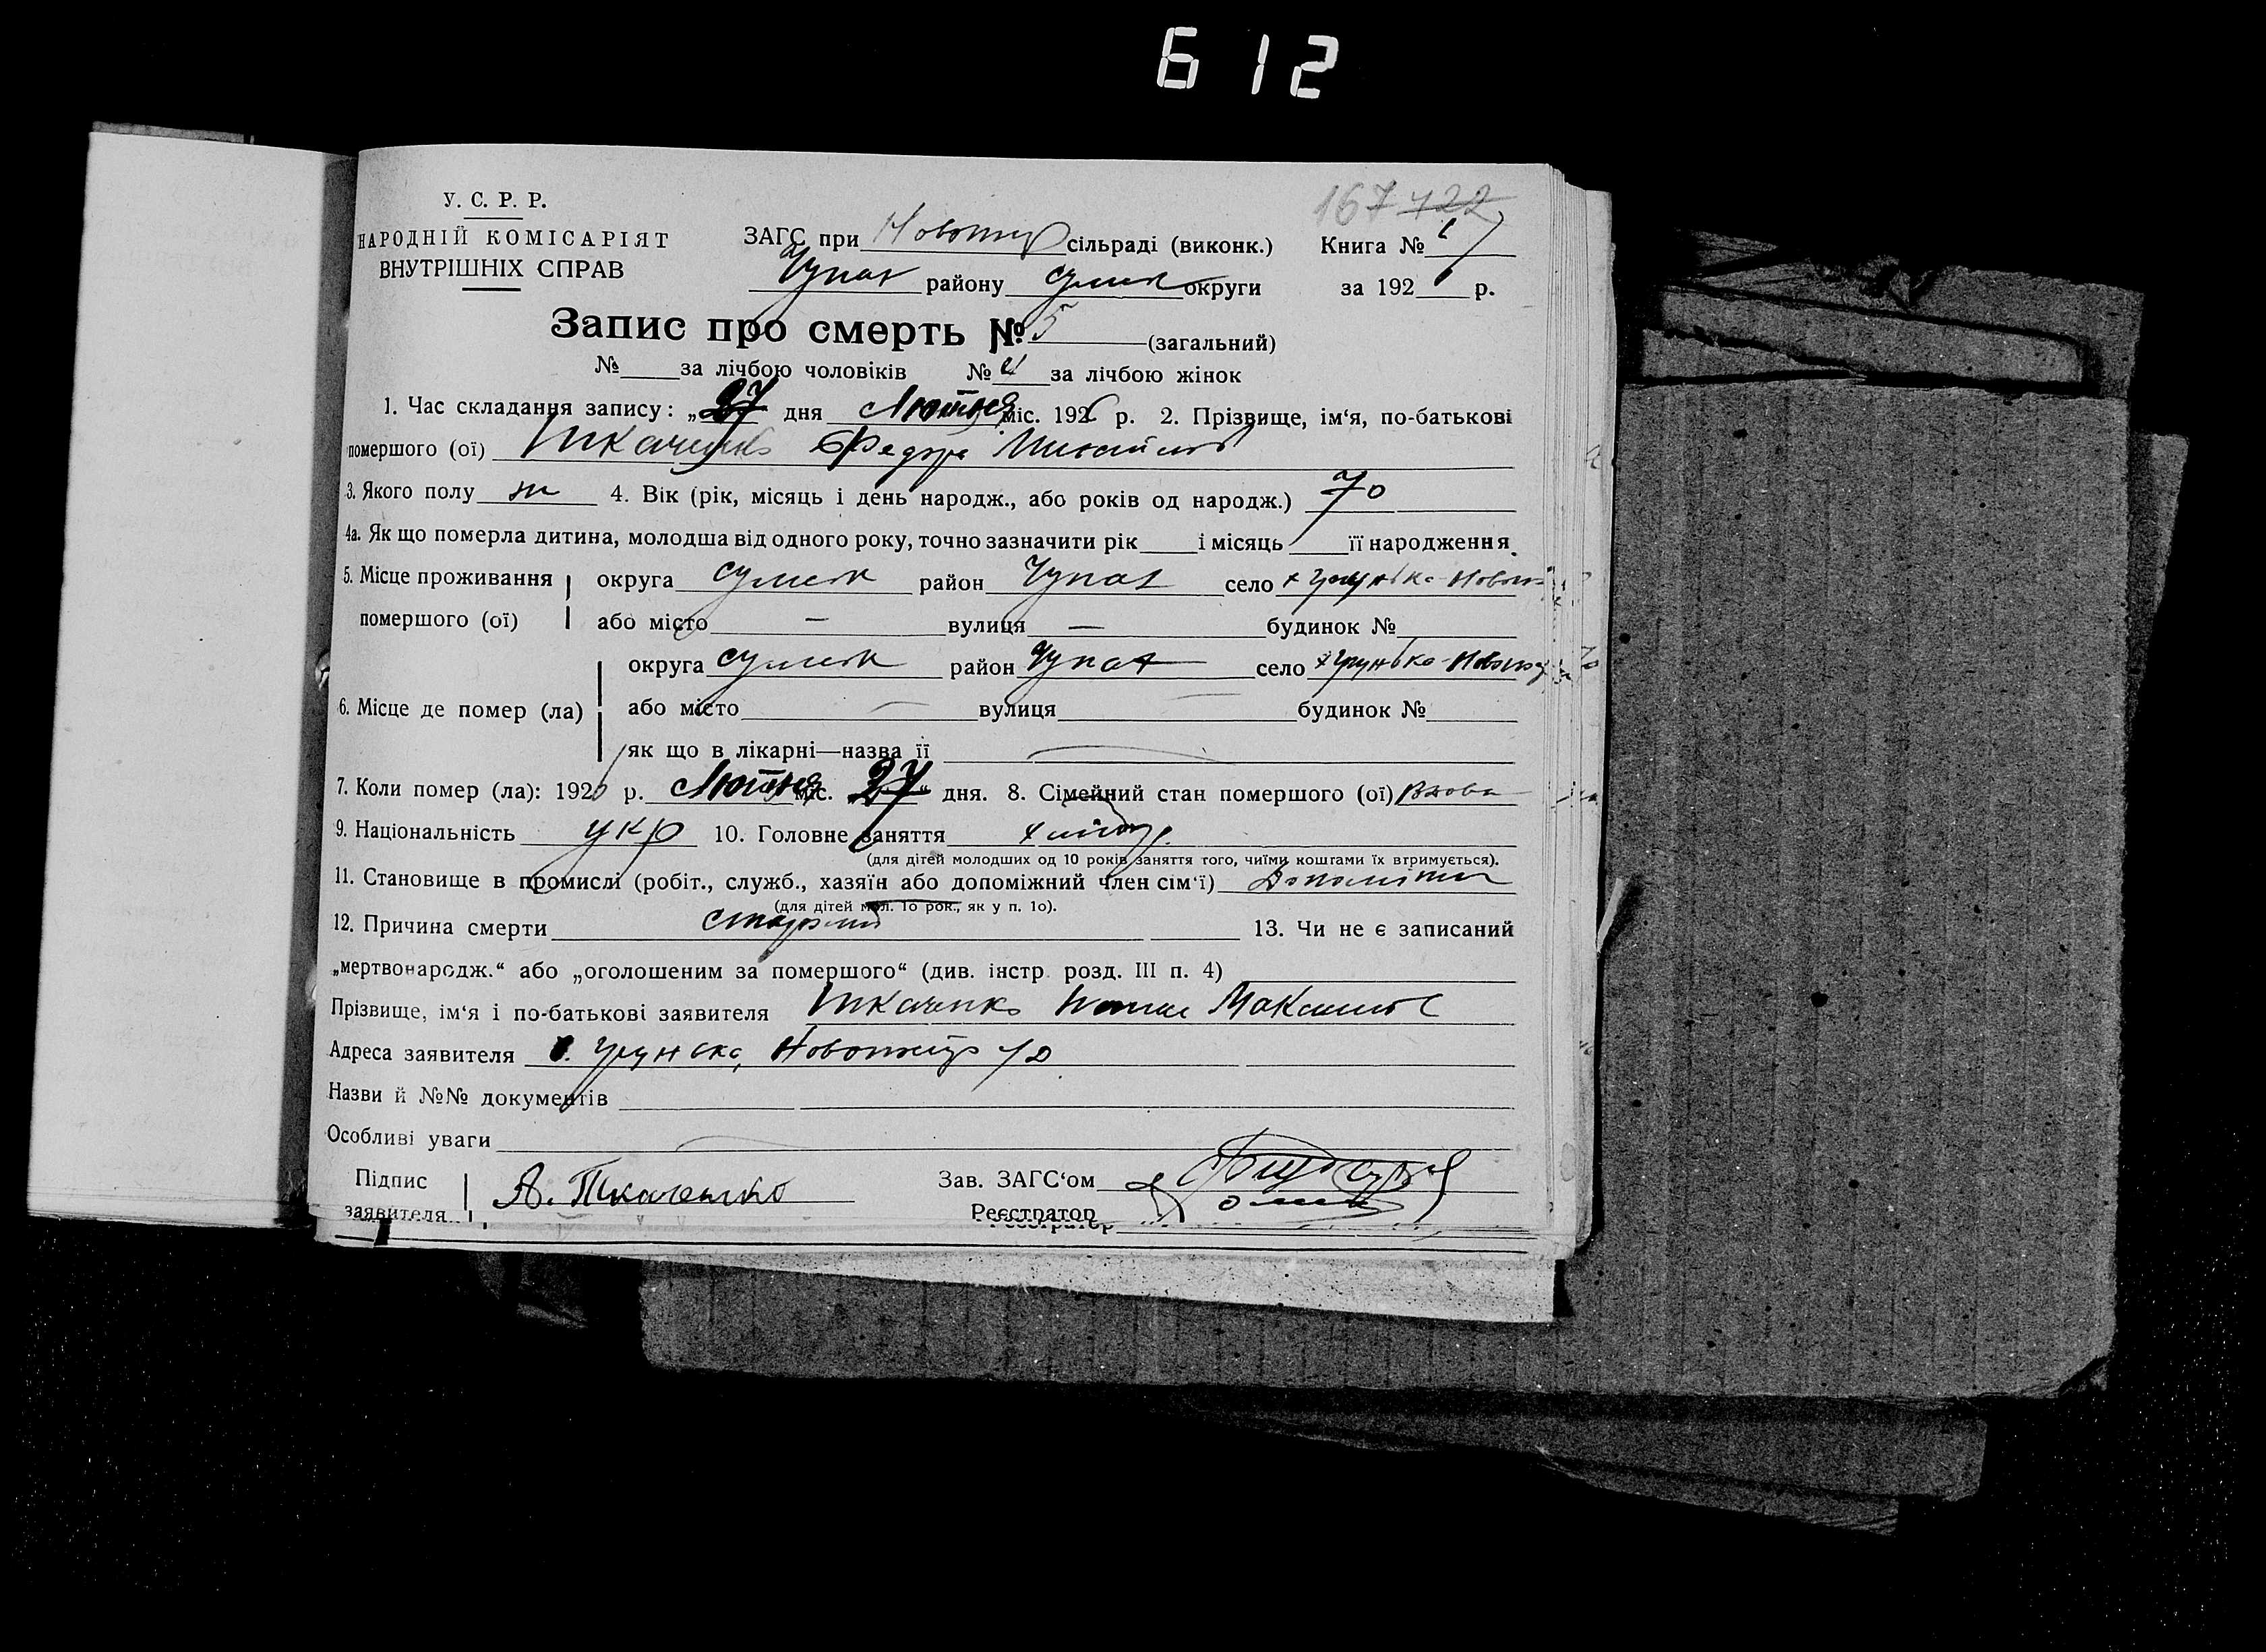 612
167 422
У. С. Р. Р.
НАРОДНІЙ КОМІСАРІЯТ
ВНУТРІШНІХ СПРАВ
ЗАГС при сільраді (виконк.) Книга №
Чупах району Сумск округи за 192 р.
Запис про смерть № 5 (загальний)
№ за лічбою чоловіків № за лічбою жінок
1. Час складання запису: „27 дня Лютня міс. 1926 р. 2. Прізвище, ім‘я, по-батькові
помершого (ої) Ткаченко Федора
3. Якого полу ж 4. Вік (рік, місяць і день народж., або років од народж.) 70
4а. Як що померла дитина, молодша від одного року, точно зазначити рік і місяць її народження.
5. Місце проживання округа Сумск район Чупах село х Грунька
помершого (ої) або місто — вулиця — будинок №
округа Сумск район Чупах село х Грунька
6. Місце де помер (ла) або місто — вулиця — будинок №
як що в лікарні—назва її —
7. Коли помер (ла): 192 р. Лютня міс. „27“ дня. 8. Сімейний стан помершого (ої) Вдова
9. Національність укр 10. Головне заняття
(для дітей молодших од 10 років заняття того, чиїми коштами їх втримується).
11. Становище в промислі (робіт., служб., хазяїн або допоміжний член сім‘ї)
(для дітей мол. 10 рок., як у п. 10).
12. Причина смерти 13. Чи не є записаний
„мертвонародж.“ або „оголошеним за помершого“ (див. інстр. розд. III п. 4)
Прізвище, ім‘я і по-батькові заявителя Ткаченко
Адреса заявителя Грунька,
Назви й №№ документів
Особливі уваги
Підпис
заявителя А. Ткаченко
Зав. ЗАГС‘ом
Реєстратор